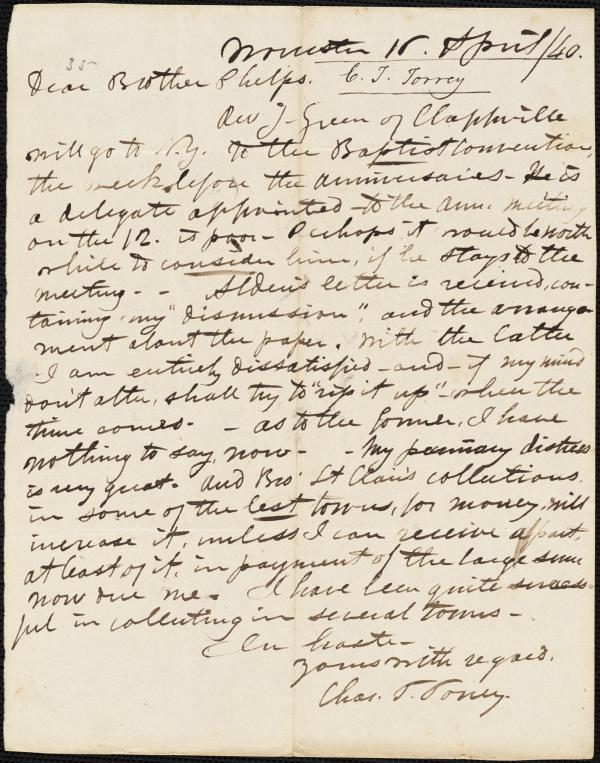 Worcester 15. April/40.
35
Dear Brother Phelps. C. T. Torrey
Rev J. Green of Clappville
will go to N.Y. to the Baptist convention,
the week before the anniversaries - He is
a delegate appointed to the Ann. meeting
on the 12. is poor - Perhaps it would be worth
while to consider him, if he stays to the
meeting. - Alden's letter is received, con-
taining my "dismission", and the arrange-
ment about the paper. With the latter
I am entirely dissatisfied - and - if my mind
don't alter, shall try to "rip it up" - when the
time comes. - as to the former, I have
nothing to say, now - - My pecuniary distress
is very great. And Bro. St Clair's collections
in some of the best towns, for money, will
increase it, unless I can receive a part,
at least of it, in payment of the large sum
now due me. I have been quite success-
ful in collecting in several towns -
In haste -
yours with regard.
Chas. T. Torrey.